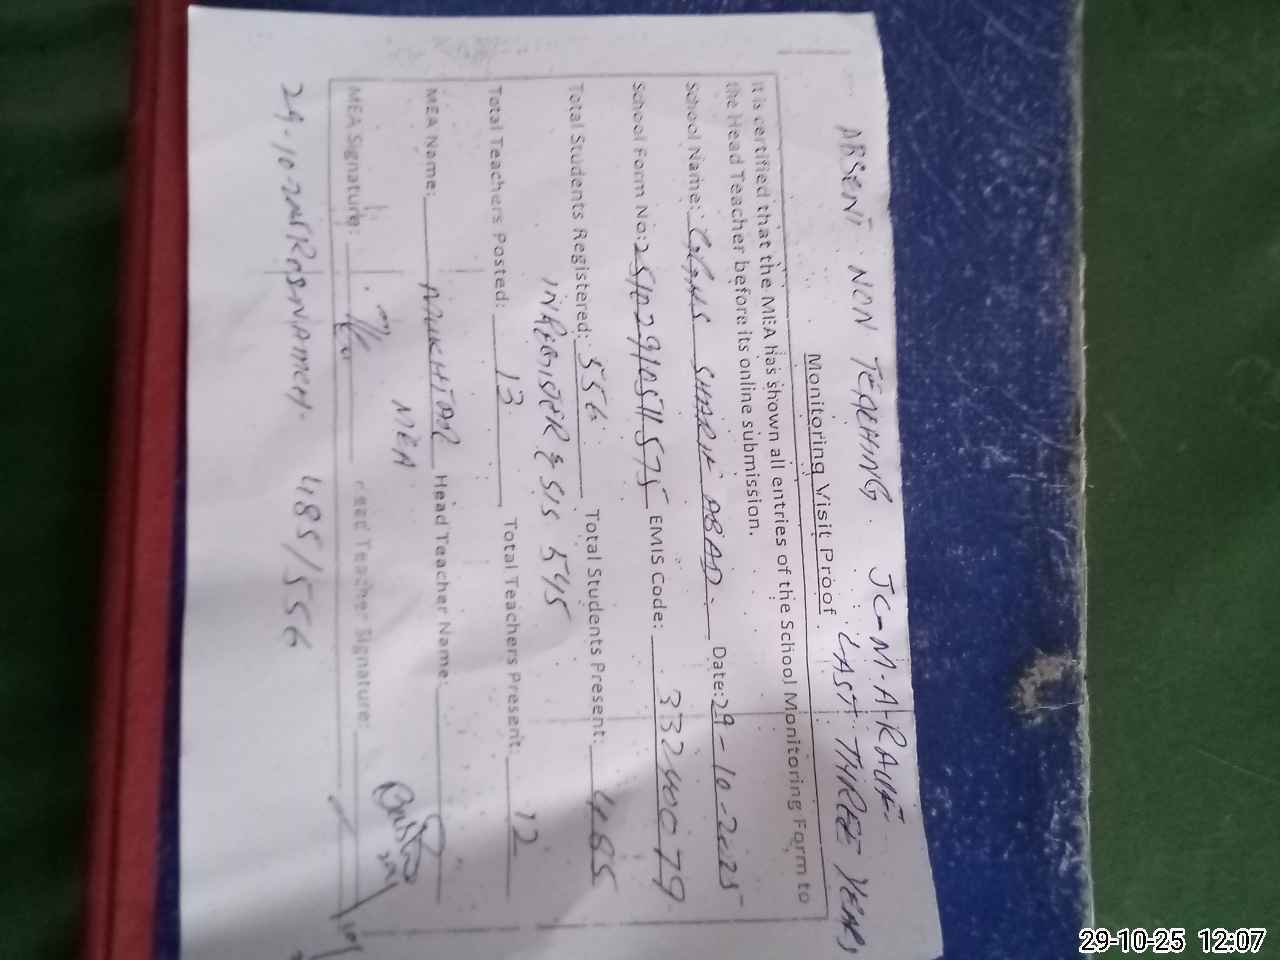 ABSENT NON TEACHING. JC-M-A-RAUF
LAST THREE YEARS
Monitoring Visit Proof
It is certified that the MEA has shown all entries of the School Monitoring Form to
the Head Teacher before its online submission.
School Name: GGHS SHARIF ABAD. Date: 29-10-2025
School Form No: 251029105 11575 EMIS Code: 33240079
Total Students Registered: 556 Total Students Present: 485
IN REGISTER & SIS 545
Total Teachers Posted: 13 Total Teachers Present: 12
MEA Name: MUKHTAR Head Teacher Name:
MEA
MEA Signature: Head Teacher Signature:
29-10-2025 485/556
29-10-25 12:07